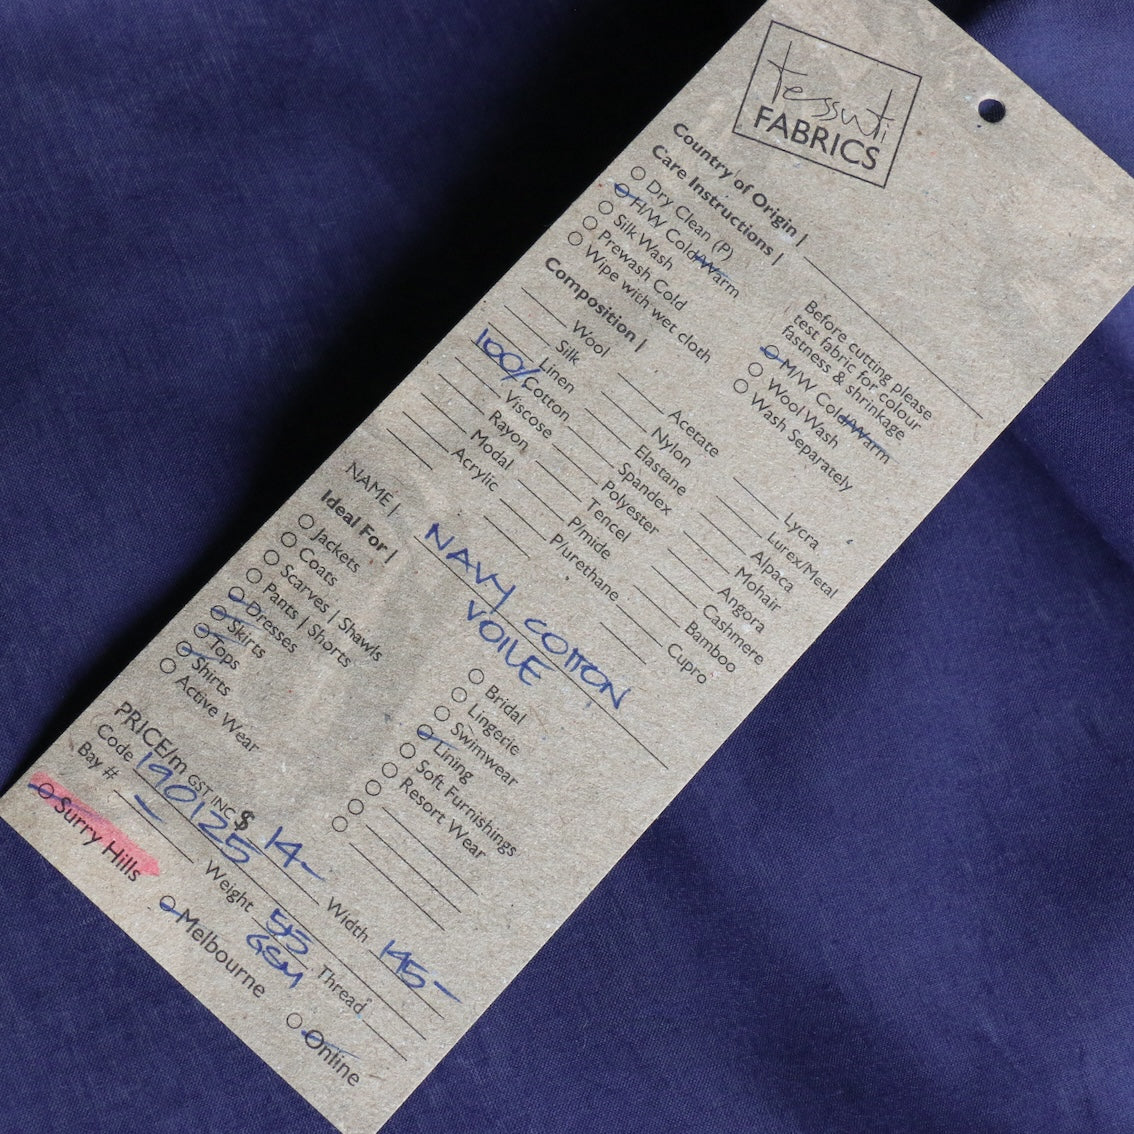 tessuti
FABRICS
Country of Origin |
Care Instructions |
Dry Clean (P)
H/W Cold/Warm
Silk Wash
Prewash Cold
Wipe with wet cloth
Before cutting please
test fabric for colour
fastness & shrinkage
M/W Cold/Warm
Wool Wash
Wash Separately
Composition |
Wool
Silk
Linen
100% Cotton
Viscose
Rayon
Modal
Acrylic
Acetate
Nylon
Elastane
Spandex
Polyester
Tencel
P/mide
P/urethane
Lycra
Lurex/Metal
Alpaca
Mohair
Angora
Cashmere
Bamboo
Cupro
NAME | NAVY COTTON
VOILE
Ideal For |
Jackets
Coats
Scarves | Shawls
Pants | Shorts
Dresses
Skirts
Tops
Shirts
Active Wear
Bridal
Lingerie
Swimwear
Lining
Soft Furnishings
Resort Wear
PRICE/m GST INC $ 14- Width 145-
Code 190125 Weight 55 GSM Thread
Bay # -
Surry Hills
Melbourne
Online